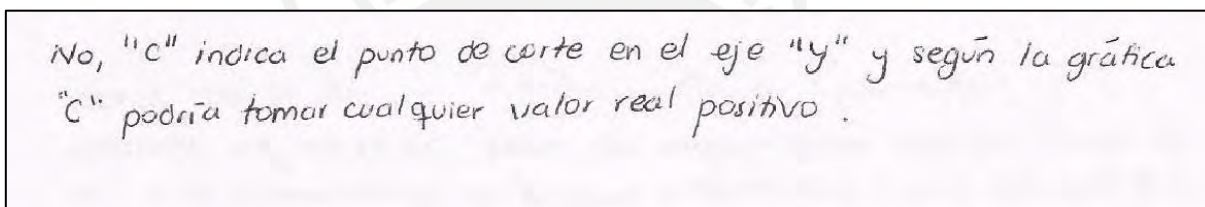 No, "C" indica el punto de corte en el eje "y" y según la gráfica
"C" podría tomar cualquier valor real positivo.